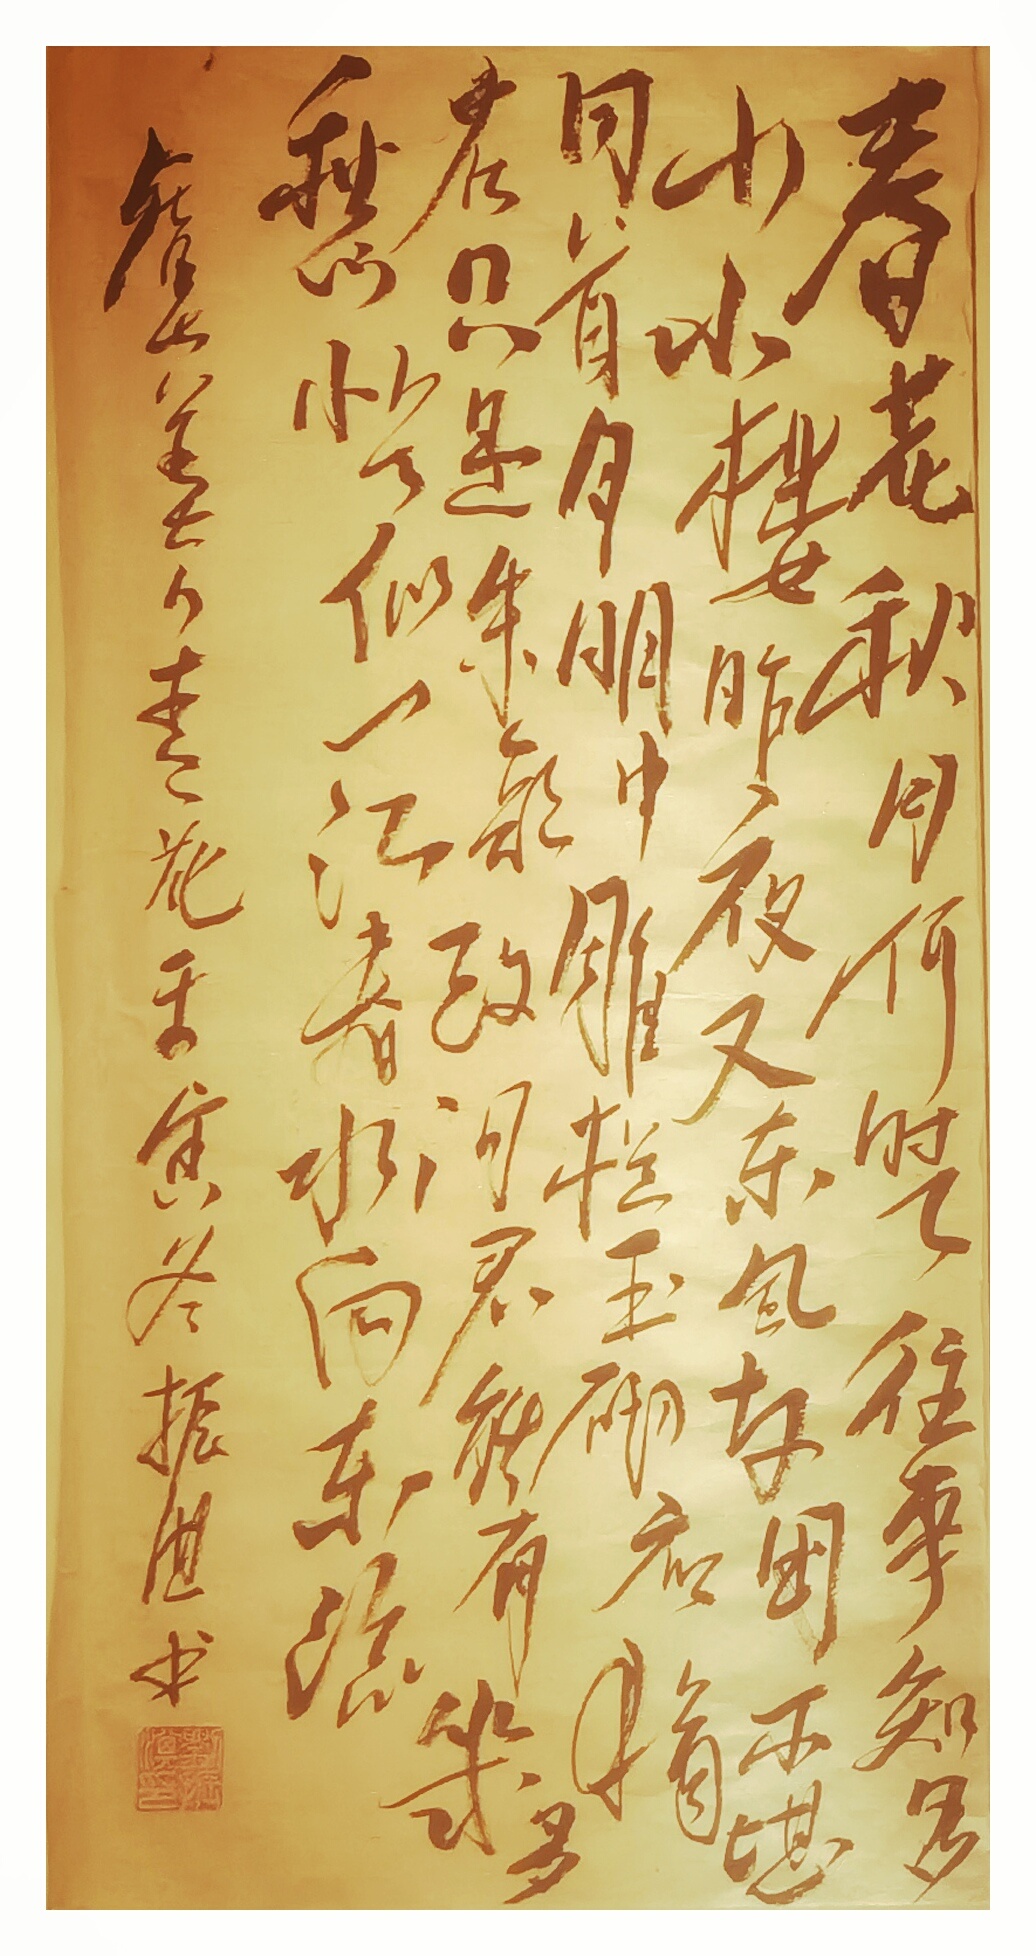 春花秋月何时了往事知多
少小樓昨夜又东风故国不堪
回首月明中雕栏玉砌应犹
在只是朱颜改问君能有幾多
愁恰似一江春水向东流
美人春花壬寅冬振书